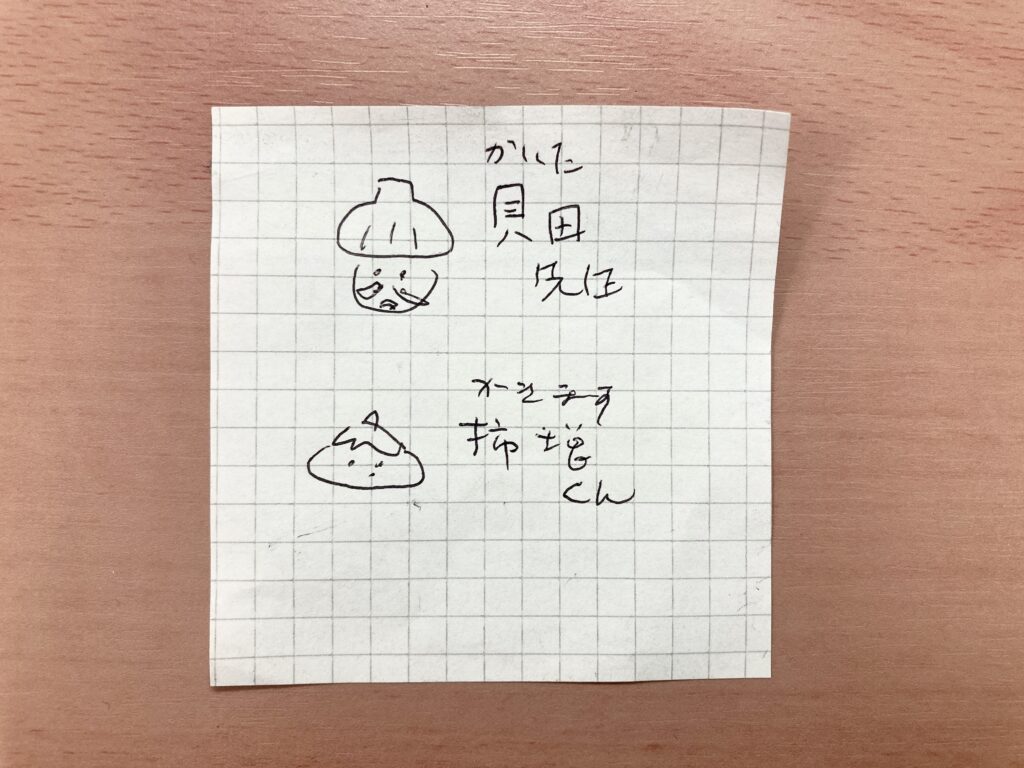 かいた
貝田
先任
かきます
柿増
くん